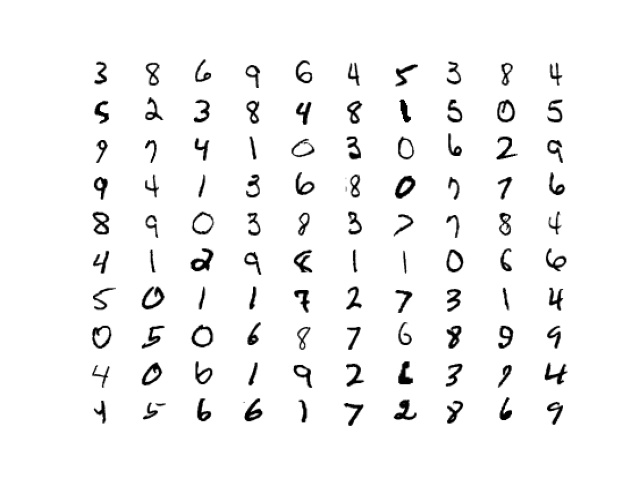 3 8 6 9 6 4 5 3 8 4
5 2 3 8 4 8 1 5 0 5
9 7 4 1 0 3 0 6 2 9
9 4 1 3 6 8 0 7 7 6
8 9 0 3 8 3 7 7 8 4
4 1 2 9 8 1 1 0 6 6
5 0 1 1 7 2 7 3 1 4
0 5 0 6 8 7 6 8 9 9
4 0 6 1 9 2 1 3 9 4
4 5 6 6 1 7 2 8 6 9